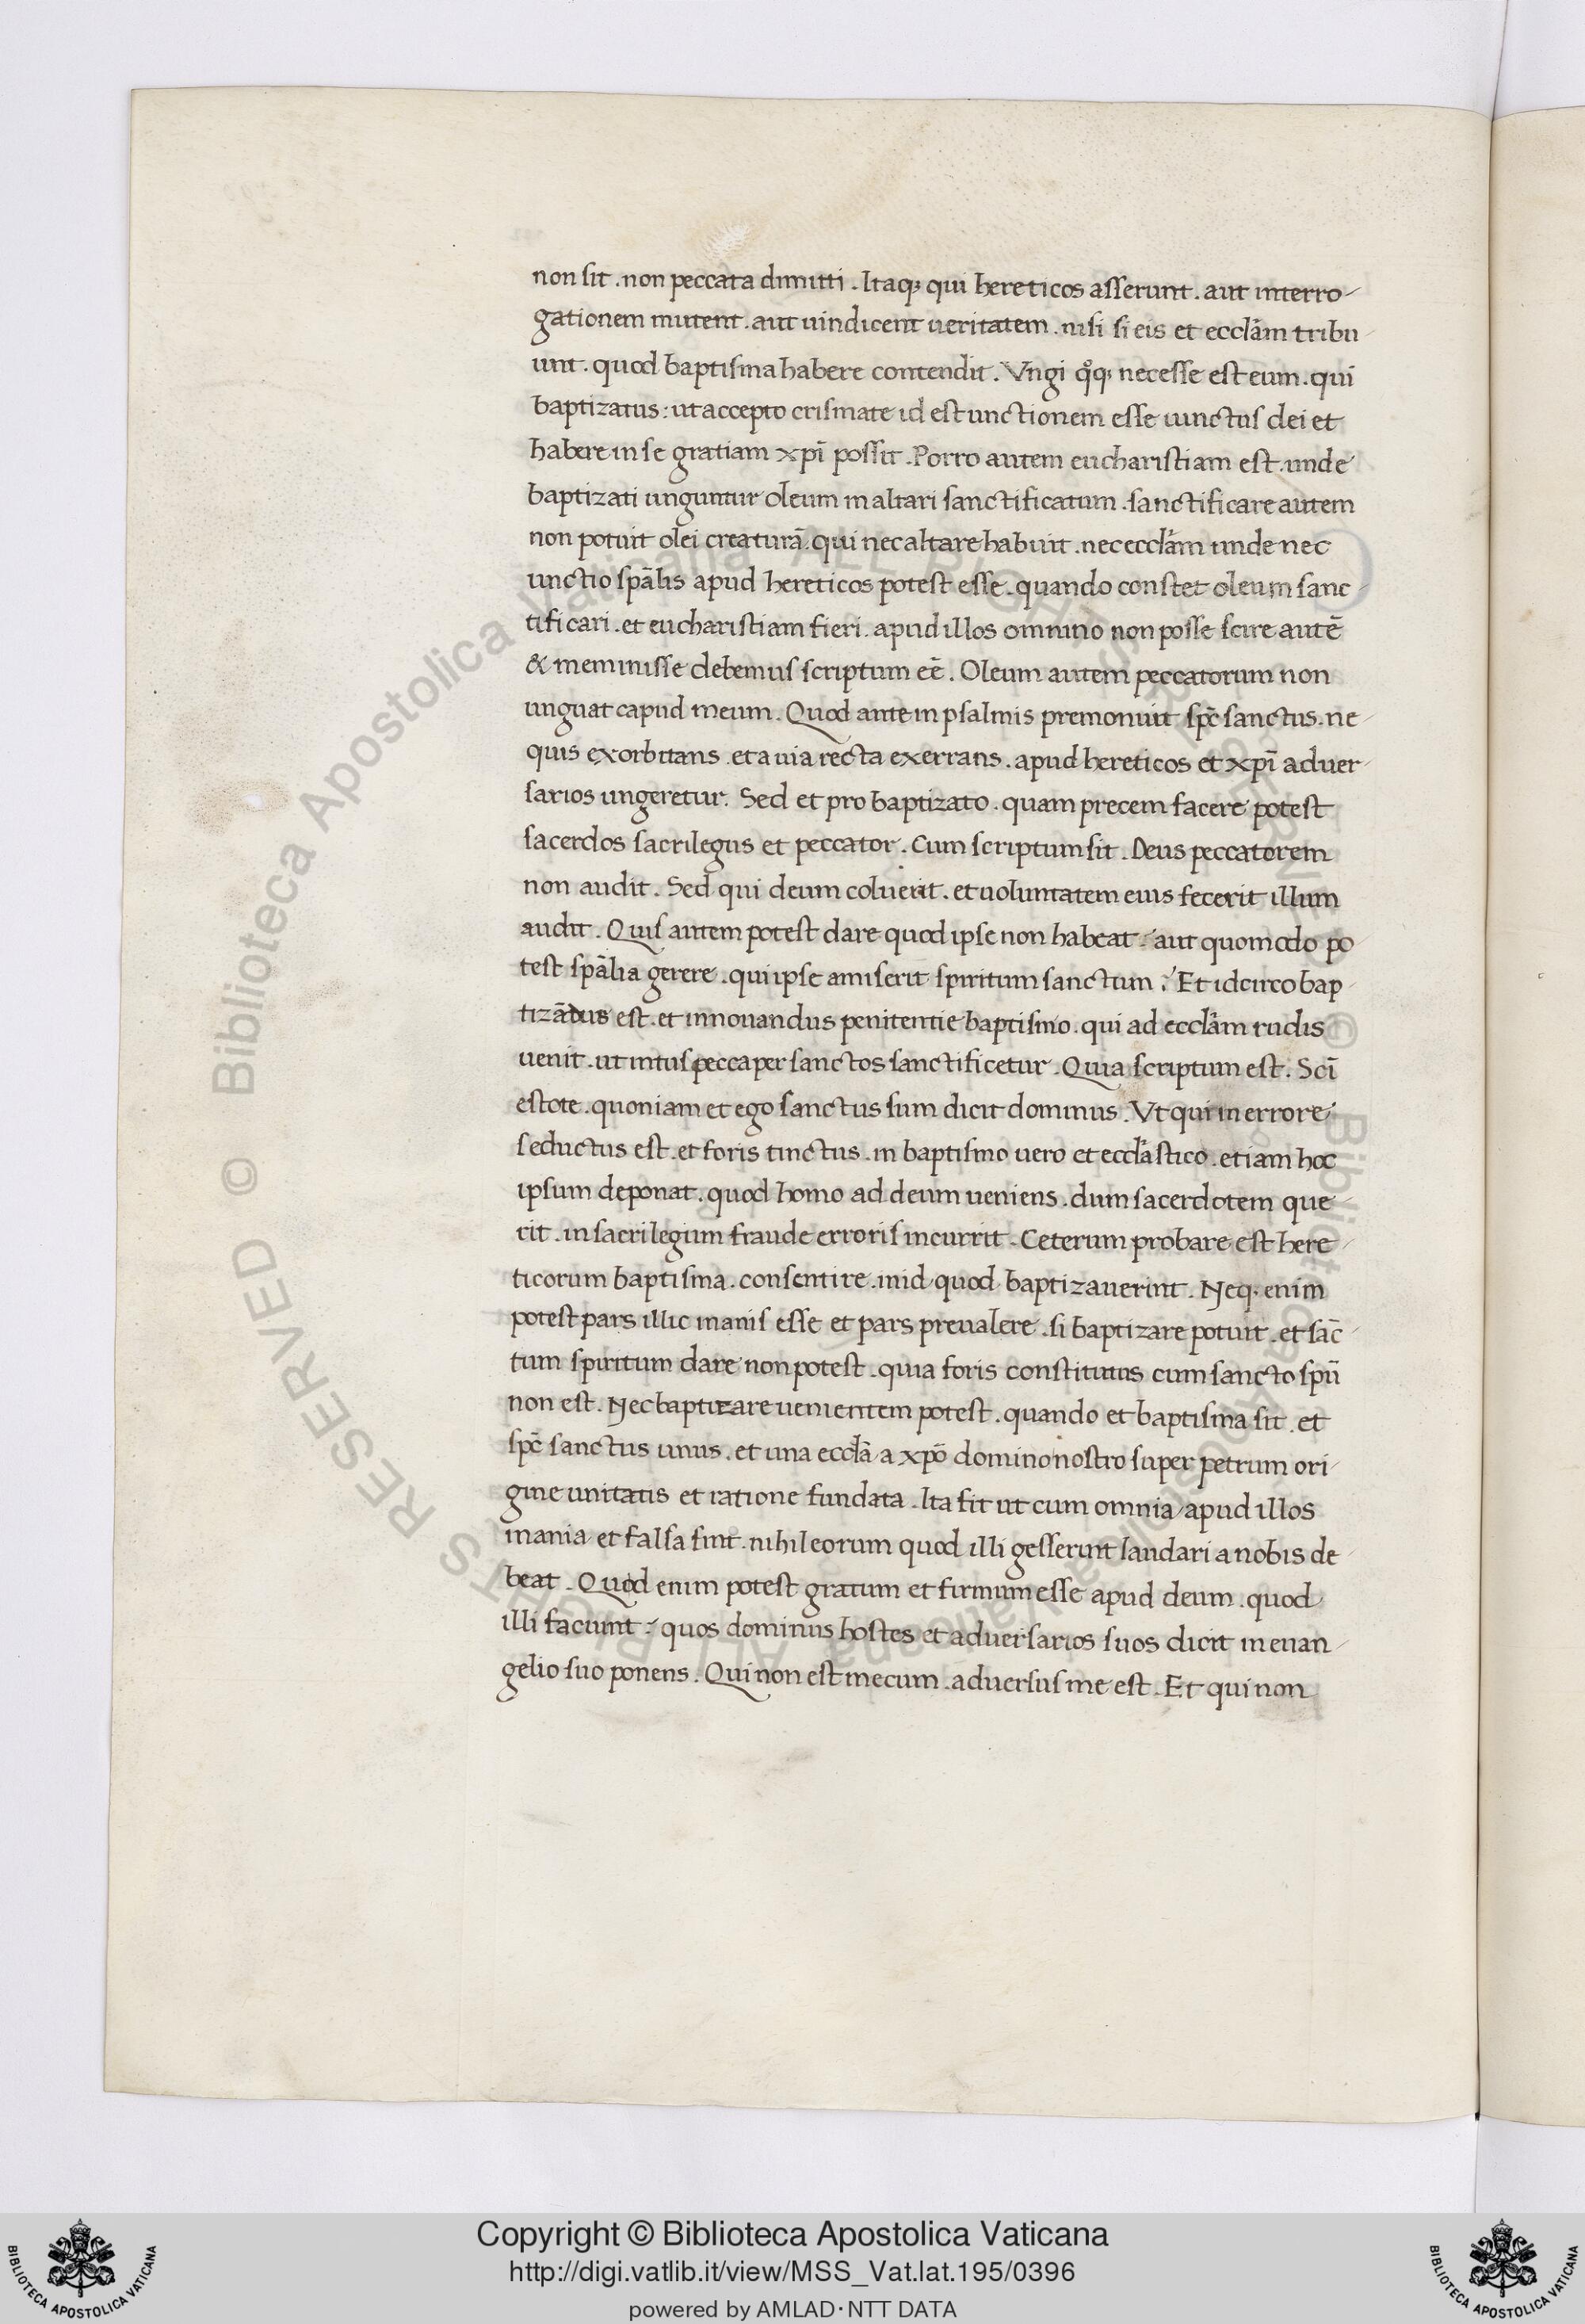 non sit . non peccata dimitti . Itaq; qui hereticos asserunt . aut interro-
gationem mutent . aut uindicent ueritatem . nisi si eis et eccłam tribu-
unt . quod baptisma habere contendit . Vngi qͦq; necesse est eum . qui
baptizatus : ut accepto crismate id est unctionem esse iunctus dei et
habere in se gratiam xp̄i possit . Porro autem eucharistiam est . unde
baptizati unguntur oleum in altari sanctificatum . sanctificare autem
non potuit olei creaturā . qui nec altare habuit . nec eccłam unde nec
unctio sp̄alis apud hereticos potest esse . quando constet oleum sanc-
tificari . et eucharistiam fieri . apud illos omnino non posse scire autē
& meminisse debemus scriptum eē . Oleum autem peccatorum non
unguat capud meum . Quod ante in psalmis premonuit sp̄c sanctus . ne-
quis exorbitans . et a uia recta exerrans . apud hereticos et xp̄i aduer-
sarios ungeretur . Sed et pro baptizato . quam precem facere potest
sacerdos sacrilegus et peccator . Cum scriptum sit . Deus peccatorem
non audit . Sed qui deum coluerit . et uoluntatem eius fecerit illum
audit . Quis autem potest dare quod ipse non habeat ? aut quomodo po-
test sp̄alia gerere . qui ipse amiserit spiritum sanctum ? Et idcirco bap-
tizādus est . et innouandus penitentie baptismo . qui ad eccłam rudis
uenit . ut intus pecca per sanctos sanctificetur . Quia scriptum est . Sc̄i
estote . quoniam et ego sanctus sum dicit dominus . Vt qui in errore
seductus est . et foris tinctus . in baptismo uero et eccłastico . etiam hoc
ipsum deponat . quod homo ad deum ueniens . dum sacerdotem que-
rit . in sacrilegium fraude erroris incurrit . Ceterum probare est here-
ticorum baptisma . consentire . in id quod baptizauerint . Neq; enim
potest pars illic inanis esse et pars preualere . si baptizare potuit . et sāc-
tum spiritum dare non potest . quia foris constitutus cum sancto spū
non est . Nec baptizare uenientem potest . quando et baptisma sit . et
sp̄c sanctus unus . et una eccła a xp̄o domino nostro super petrum ori-
gine unitatis et ratione fundata . Ita fit ut cum omnia apud illos
inania et falsa sint . nihil eorum quod illi gesserint laudari a nobis de-
beat . Quod enim potest gratum et firmum esse apud deum . quod
illi faciunt ? quos dominus hostes et aduersarios suos dicit in euan-
gelio suo ponens . Qui non est mecum . aduersus me est . Et qui non
© Biblioteca Apostolica Vaticana ALL RIGHTS RESERVED
© Biblioteca Apostolica Vaticana ALL RIGHTS RESERVED
Copyright © Biblioteca Apostolica Vaticana
http://digi.vatlib.it/view/MSS_Vat.lat.195/0396
powered by AMLAD·NTT DATA
BIBLIOTECA APOSTOLICA VATICANA
BIBLIOTECA APOSTOLICA VATICANA